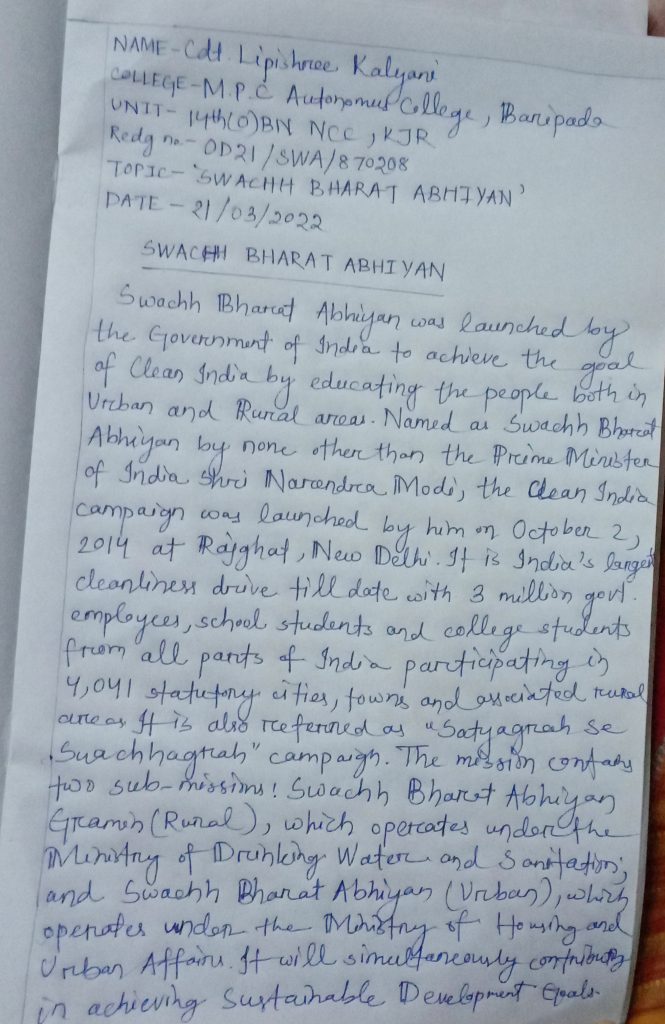 NAME - Cdt. Lipishree Kalyani
COLLEGE - M.P.C Autonomus College, Baripada
UNIT - 14th(O)BN NCC, KJR
Redg no - OD21/SWA/870208
TOPIC - 'SWACHH BHARAT ABHIYAN'
DATE - 21/03/2022
SWACHH BHARAT ABHIYAN
Swachh Bharat Abhiyan was launched by
the Government of India to achieve the goal
of Clean India by educating the people both in
Urban and Rural areas. Named as Swachh Bharat
Abhiyan by none other than the Prime Minister
of India Shri Narendra Modi, the Clean India
campaign was launched by him on October 2,
2014 at Rajghat, New Delhi. It is India's largest
cleanliness drive till date with 3 million govt.
employees, school students and college students
from all parts of India participating in
4,041 statutory cities, towns and associated rural
areas It is also referred as "Satyagrah se
Swachhagrah" campaign. The mission contains
two sub-missions: Swachh Bharat Abhiyan
Gramin (Rural), which operates under the
Ministry of Drinking Water and Sanitation;
and Swachh Bharat Abhiyan (Urban), which
operates under the Ministry of Housing and
Urban Affairs. It will simultaneously contributing
in achieving Sustainable Development Goals.